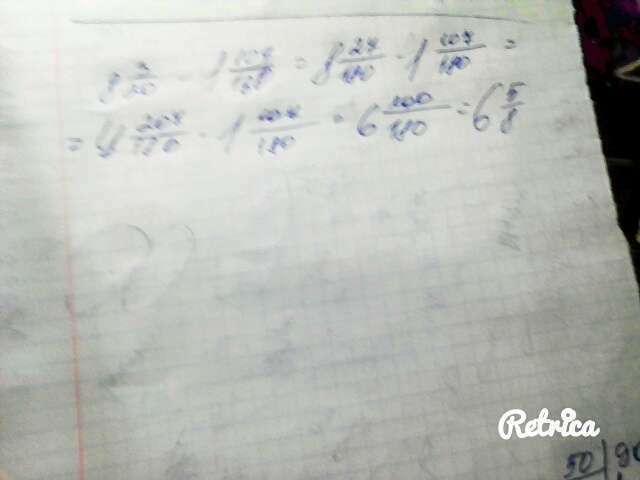 8 3/20 - 1 107/180 = 8 27/180 - 1 107/180 =
= 7 207/180 - 1 107/180 = 6 100/180 = 6 5/8
Retrica
50 | 90